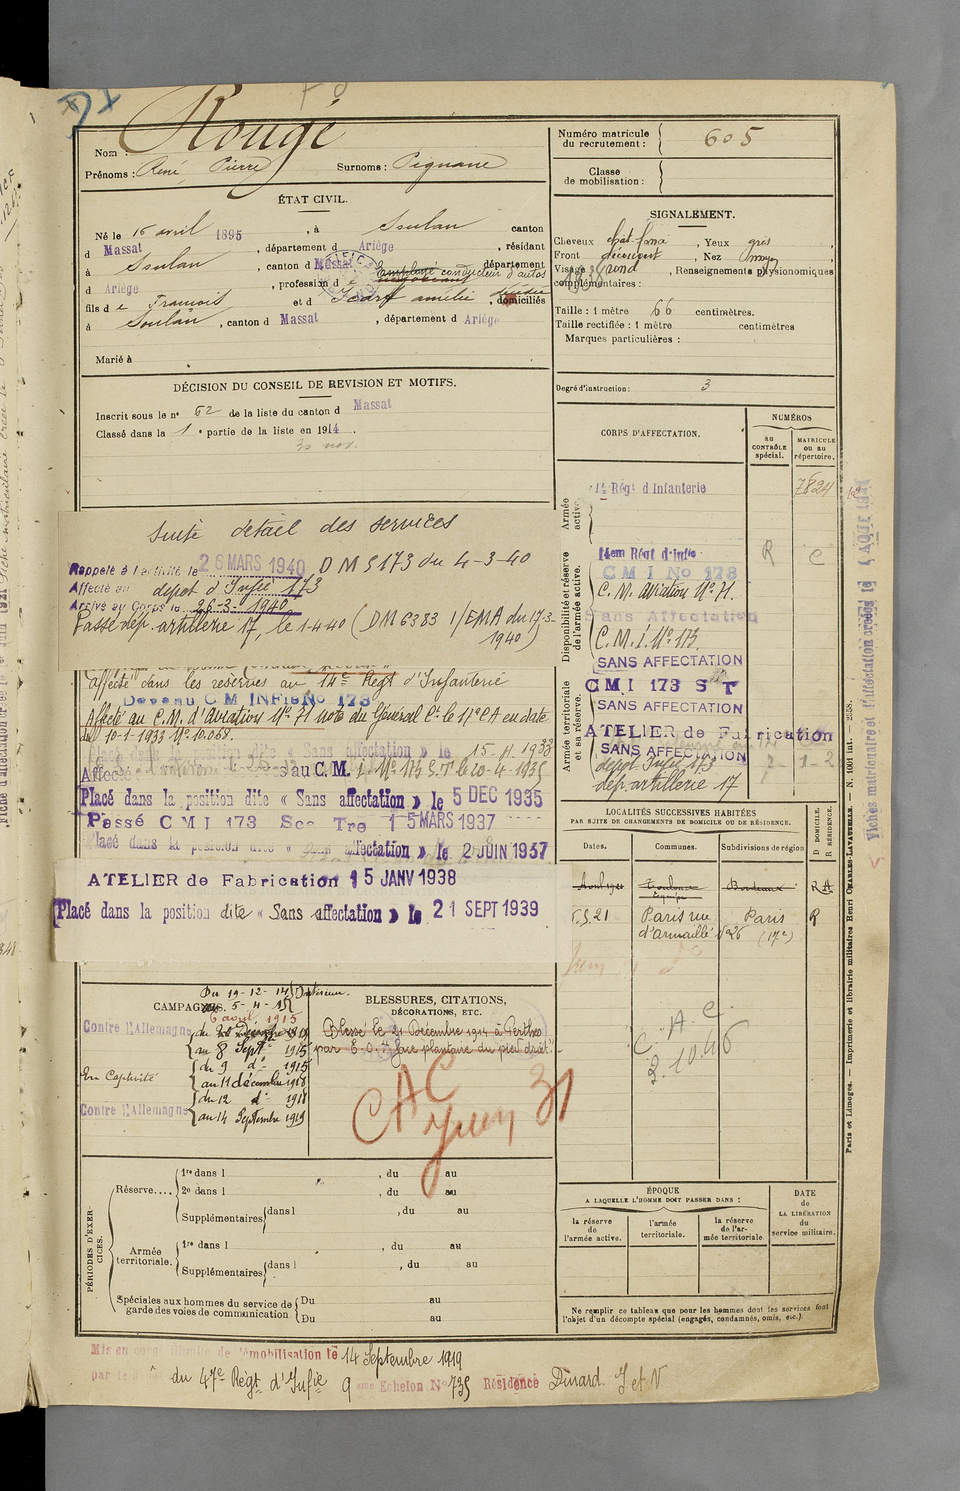 Rougé
Nom :
Prénoms : René, Pierre Surnoms : Pignane
Numéro matricule du recrutement : 605
Classe de mobilisation :
ÉTAT CIVIL.
Né le 16 avril 1895, à Soulan canton
d Massat, département d Ariège, résidant
à Soulan, canton d Massat, département
d Ariège, profession d conducteur d'autos
fils de François et d Icart amélie décédée, domiciliés
à Soulan, canton d Massat, département d Ariège
Marié à
SIGNALEMENT.
Cheveux chât. foncé, Yeux gris
Front découvert, Nez moy
Visage rond, Renseignements physionomiques
complémentaires :
Taille : 1 mètre 66 centimètres.
Taille rectifiée : 1 mètre centimètres
Marques particulières :
Degré d'instruction : 3
DÉCISION DU CONSEIL DE REVISION ET MOTIFS.
Inscrit sous le n° 62 de la liste du canton d Massat
Classé dans la 1e partie de la liste en 1914.
30 nov.
Suite détail des services
Rappelé à l'activité le 26 MARS 1940 DM 5173 du 4-3-40
Affecté au dépôt d'Infie 173
Arrivé au Corps le 26-3-1940
Passé dép. artillerie 17, le 1-4-40 (DM 6383 1/EMA du 17-3-
1940)
Affecté dans les réserves au 14e Régt d'Infanterie
Devenu C M INFie No 173
Affecté au C.M. d'Aviation No 71 note du Général Ct le 17e CA en date
du 10-1-1933 No 10.068.
Placé dans la position dite « Sans affectation » le 15-11-1933
Affecté au C.M. I. No 173 S.T le 20-4-1935
Placé dans la position dite « Sans affectation » le 5 DEC 1935
Passé C M I 173 Sec Tre 15 MARS 1937
Placé dans la position dite « Sans affectation » le 2 JUIN 1937
ATELIER de Fabrication 15 JANV 1938
Placé dans la position dite « Sans affectation » le 21 SEPT 1939
CORPS D'AFFECTATION.
NUMÉROS
au CONTRÔLE spécial.
MATRICULE ou au répertoire.
Armée active.
14 Régt d'Infanterie 7824
Disponibilité et réserve de l'armée active.
14em Régt d'Infie R C
C M I No 173
C. M. Aviation No 71.
Sans Affectation
C. M. I. No 173
SANS AFFECTATION
Armée territoriale et sa réserve.
C M I 173 S T
SANS AFFECTATION
ATELIER de Fabrication
SANS AFFECTATION
dépôt Infie 173
dép. artillerie 17
LOCALITÉS SUCCESSIVES HABITÉES
PAR SUITE DE CHANGEMENTS DE DOMICILE OU DE RÉSIDENCE.
Dates. Communes. Subdivisions de région D DOMICILE. R RÉSIDENCE.
Toulouse Bordeaux R
5.21 Paris rue Paris R
d'armaillé No 26 (17e)
C. A. C
2.10.46
CAMPAGNES.
Du 19-12-14 Intérieur.
5-4-15
6 avril 1915
Contre l'Allemagne
au 8 Septe 1915
En Captivité
du 9 do 1915
au 11 décembre 1918
Contre l'Allemagne
du 12 do 1918
au 14 Septembre 1919
BLESSURES, CITATIONS,
DÉCORATIONS, ETC.
Blessé le 21 Décembre 1914 à Perthes
par E.O. face plantaire du pied droit
CAC
Juin 31
PÉRIODES D'EXERCICES.
Réserve....
1re dans l , du au
2e dans l , du au
Supplémentaires dans l , du au
Armée territoriale.
1re dans l , du au
Supplémentaires dans l , du au
Spéciales aux hommes du service de garde des voies de communication
Du au
Du au
ÉPOQUE
A LAQUELLE L'HOMME DOIT PASSER DANS :
la réserve de l'armée active.
l'armée territoriale.
la réserve de l'armée territoriale
DATE de LA LIBÉRATION du service militaire.
Ne remplir ce tableau que pour les hommes dont les services font
l'objet d'un décompte spécial (engagés, condamnés, omis, etc.)
Mis en congé illimité de démobilisation le 14 Septembre 1919
par le dépôt du 47e Régt d'Infie 9eme Echelon No 735 Résidence Dinard I et V
Paris et Limoges. — Imprimerie et librairie militaires Henri CHARLES-LAVAUZELLE. — N. 1001 int. — 2558.